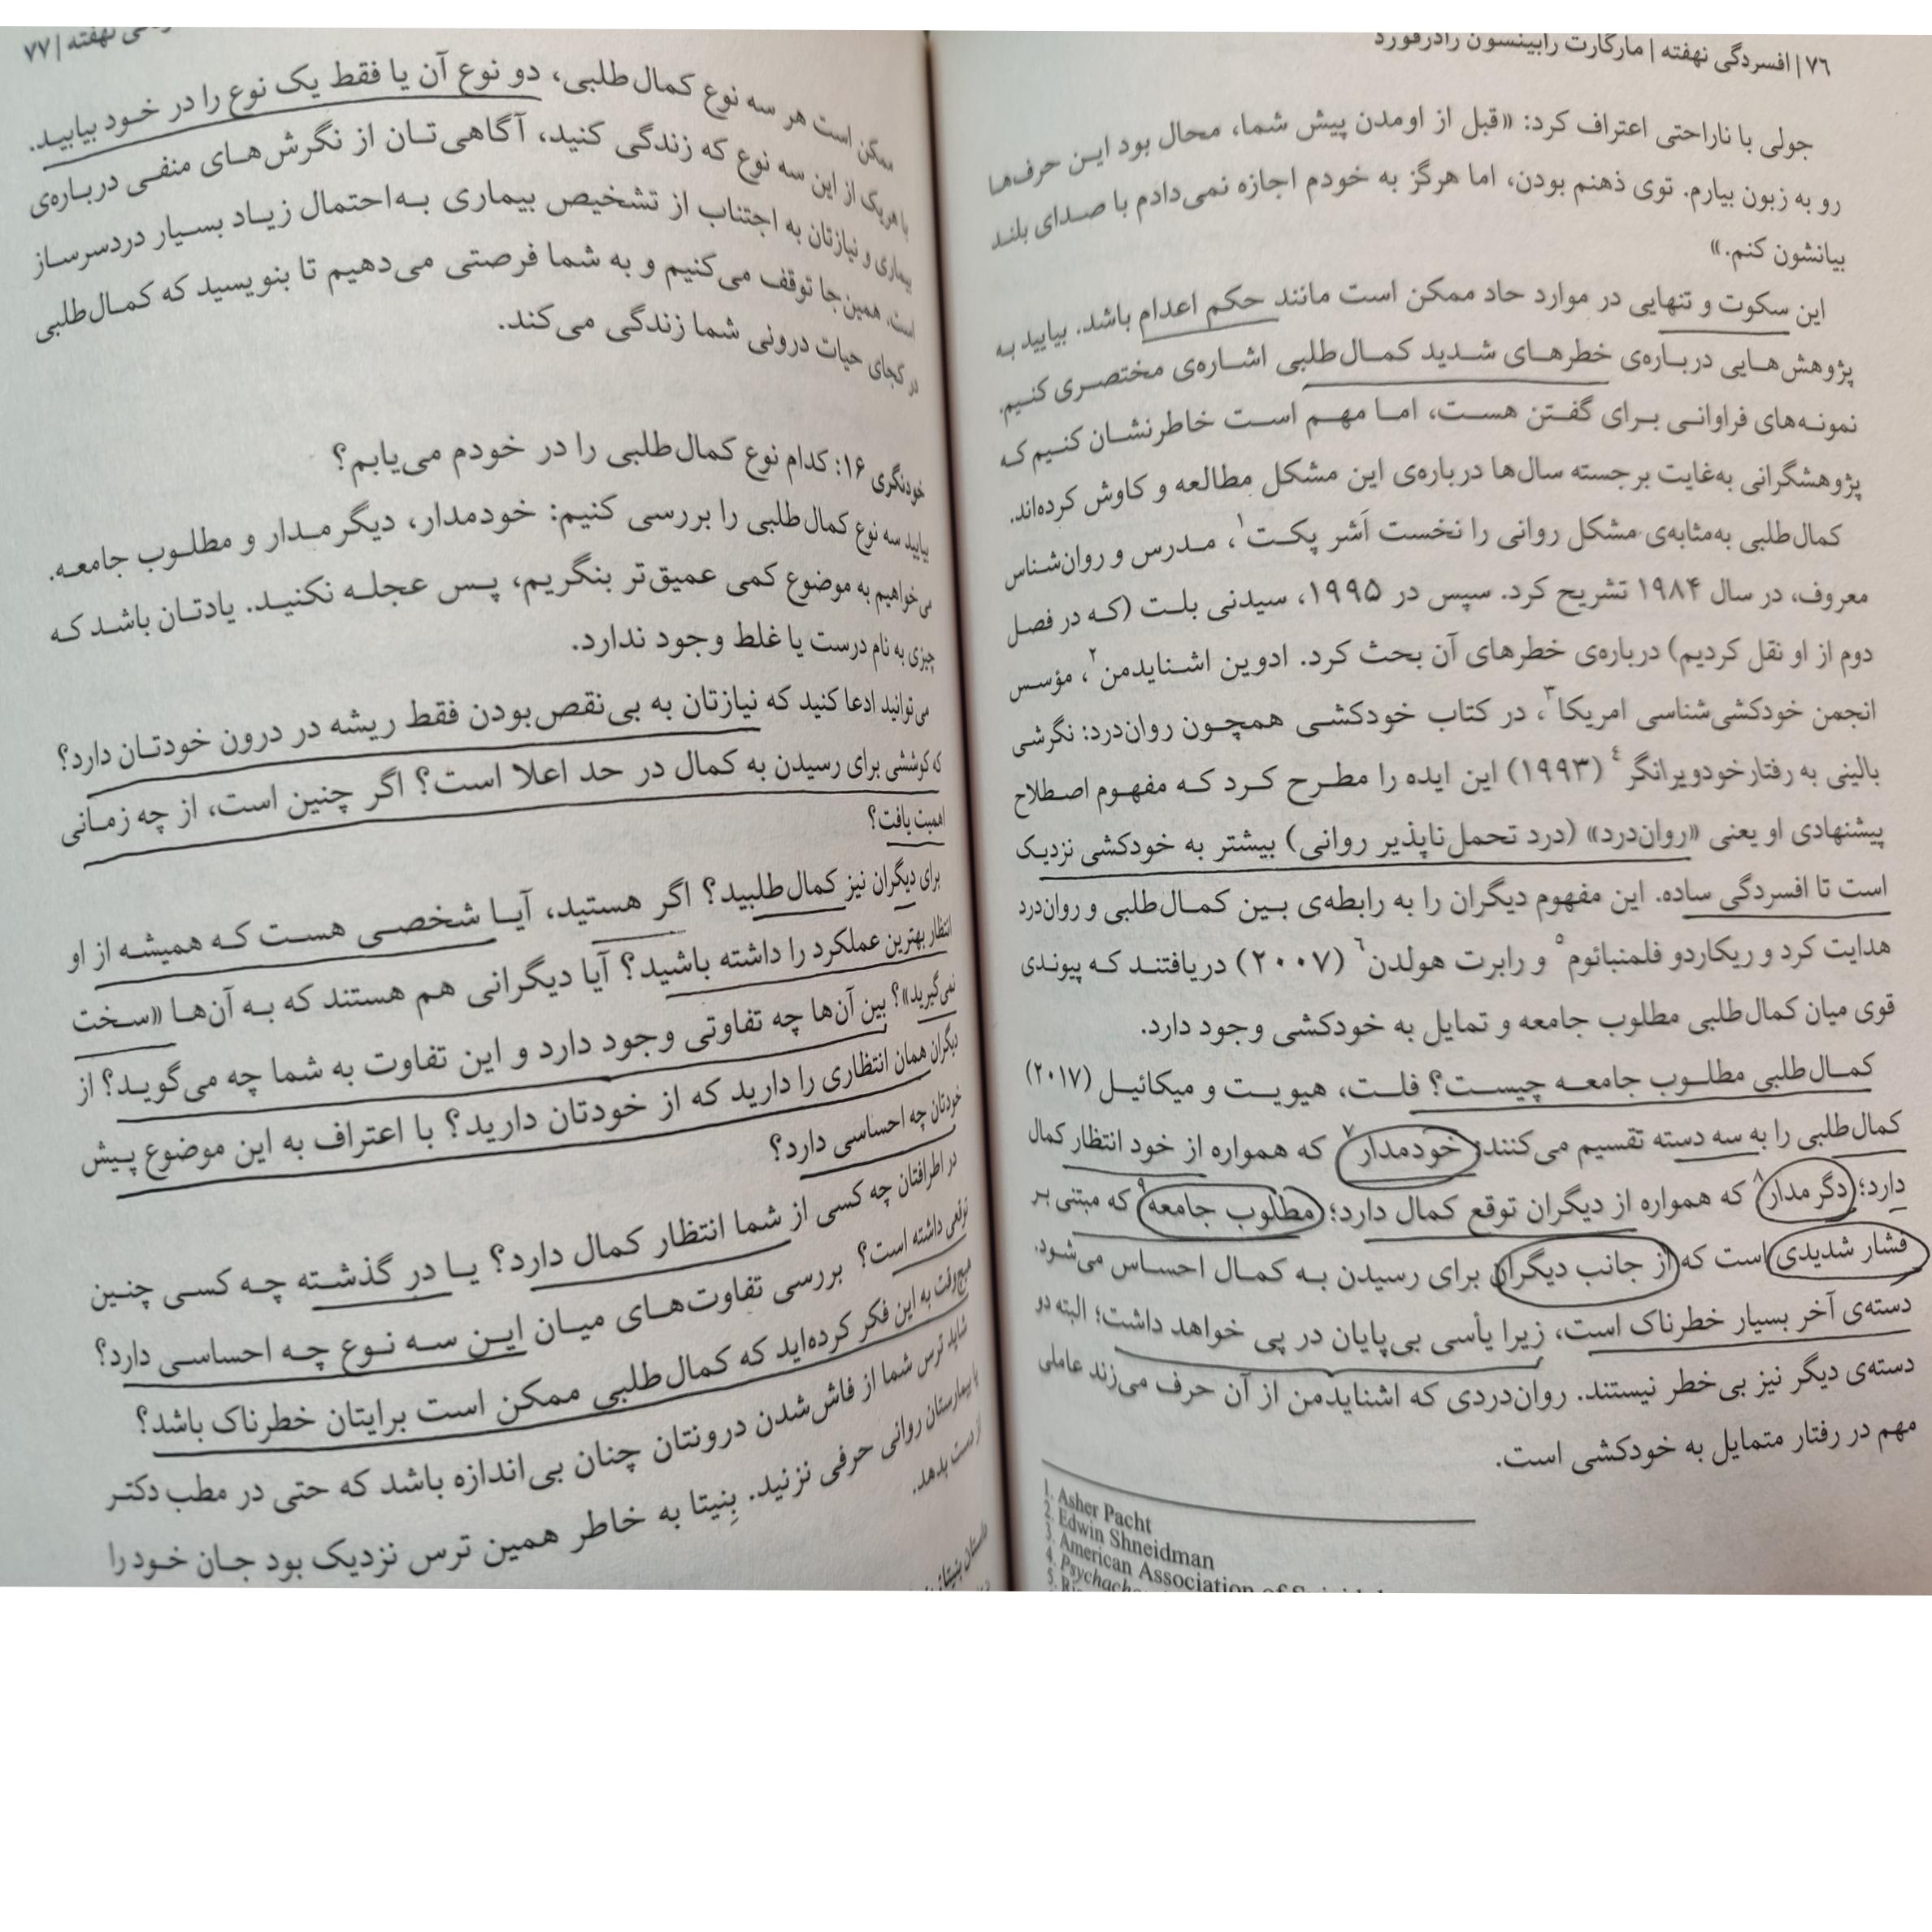 ۷۶ | افسردگی نهفته | مارگارت رابینسون رادرفورد
جولی با ناراحتی اعتراف کرد: «قبل از اومدن پیش شما، محال بود ایـن حرف‌هـا
رو به زبون بیارم. توی ذهنم بودن، اما هرگز به خودم اجازه نمی‌دادم با صدای بلند
بیانشون کنم.»
این سکوت و تنهایی در موارد حاد ممکن است مانند حکم اعدام باشد. بیایید به
پژوهش‌هایی درباره‌ی خطرهای شدید کمال‌طلبی اشاره‌ی مختصری کنیم.
نمونه‌های فراوانی برای گفتن هست، اما مهم است خاطرنشان کنیم که
پژوهشگرانی به‌غایت برجسته سال‌ها درباره‌ی این مشکل مطالعه و کاوش کرده‌اند.
کمال‌طلبی به‌مثابه‌ی مشکل روانی را نخست اَشر پکت۱، مدرس و روان‌شناس
معروف، در سال ۱۹۸۴ تشریح کرد. سپس در ۱۹۹۵، سیدنی بلت (که در فصل
دوم از او نقل کردیم) درباره‌ی خطرهای آن بحث کرد. ادوین اشنایدمن۲، مؤسس
انجمن خودکشی‌شناسی امریکا۳، در کتاب خودکشی همچون روان‌درد: نگرشی
بالینی به رفتار خودویرانگر۴ (۱۹۹۳) این ایده را مطرح کرد که مفهوم اصطلاح
پیشنهادی او یعنی «روان‌درد» (درد تحمل‌ناپذیر روانی) بیشتر به خودکشی نزدیک
است تا افسردگی ساده. این مفهوم دیگران را به رابطه‌ی بین کمال‌طلبی و روان‌درد
هدایت کرد و ریکاردو فلمنبائوم۵ و رابرت هولدن۶ (۲۰۰۷) دریافتند که پیوندی
قوی میان کمال‌طلبی مطلوب جامعه و تمایل به خودکشی وجود دارد.
کمال‌طلبی مطلوب جامعه چیست؟ فلت، هیویت و میکائیل (۲۰۱۷)
کمال‌طلبی را به سه دسته تقسیم می‌کنند: خودمدار۷ که همواره از خود انتظار کمال
دارد؛ دگرمدار۸ که همواره از دیگران توقع کمال دارد؛ مطلوب جامعه۹ که مبتنی بر
فشار شدیدی است که از جانب دیگران برای رسیدن به کمال احساس می‌شود.
دسته‌ی آخر بسیار خطرناک است، زیرا یأسی بی‌پایان در پی خواهد داشت؛ البته دو
دسته‌ی دیگر نیز بی‌خطر نیستند. روان‌دردی که اشنایدمن از آن حرف می‌زند عاملی
مهم در رفتار متمایل به خودکشی است.
1. Asher Pacht
2. Edwin Shneidman
3. American Association of
4.
نهفته | ۷۷
ممکن است هر سه نوع کمال‌طلبی، دو نوع آن یا فقط یک نوع را در خود بیابید.
با هریک از این سه نوع که زندگی کنید، آگاهی‌تان از نگرش‌های منفی درباره‌ی
بیماری و نیازتان به اجتناب از تشخیص بیماری به‌احتمال زیاد بسیار دردسرساز
است. همین‌جا توقف می‌کنیم و به شما فرصتی می‌دهیم تا بنویسید که کمال‌طلبی
در کجای حیات درونی شما زندگی می‌کند.
خودنگری ۱۶: کدام نوع کمال‌طلبی را در خودم می‌یابم؟
بیایید سه نوع کمال‌طلبی را بررسی کنیم: خودمدار، دیگرمدار و مطلوب جامعه.
می‌خواهیم به موضوع کمی عمیق‌تر بنگریم، پس عجله نکنید. یادتان باشد که
چیزی به نام درست یا غلط وجود ندارد.
می‌توانید ادعا کنید که نیازتان به بی‌نقص‌بودن فقط ریشه در درون خودتان دارد؟
که کوششی برای رسیدن به کمال در حد اعلا است؟ اگر چنین است، از چه زمانی
اهمیت یافت؟
برای دیگران نیز کمال‌طلبید؟ اگر هستید، آیا شخصی هست که همیشه از او
انتظار بهترین عملکرد را داشته باشید؟ آیا دیگرانی هم هستند که به آن‌ها «سخت
نمی‌گیرید»؟ بین آن‌ها چه تفاوتی وجود دارد و این تفاوت به شما چه می‌گوید؟ از
دیگران همان انتظاری را دارید که از خودتان دارید؟ با اعتراف به این موضوع پیش
خودتان چه احساسی دارد؟
در اطرافتان چه کسی از شما انتظار کمال دارد؟ یا در گذشته چه کسی چنین
توقعی داشته است؟ بررسی تفاوت‌های میان این سه نوع چه احساسی دارد؟
هیچ‌وقت به این فکر کرده‌اید که کمال‌طلبی ممکن است برایتان خطرناک باشد؟
شاید ترس شما از فاش‌شدن درونتان چنان بی‌اندازه باشد که حتی در مطب دکتر
یا بیمارستان روانی حرفی نزنید. بِنیتا به خاطر همین ترس نزدیک بود جان خود را
از دست بدهد.